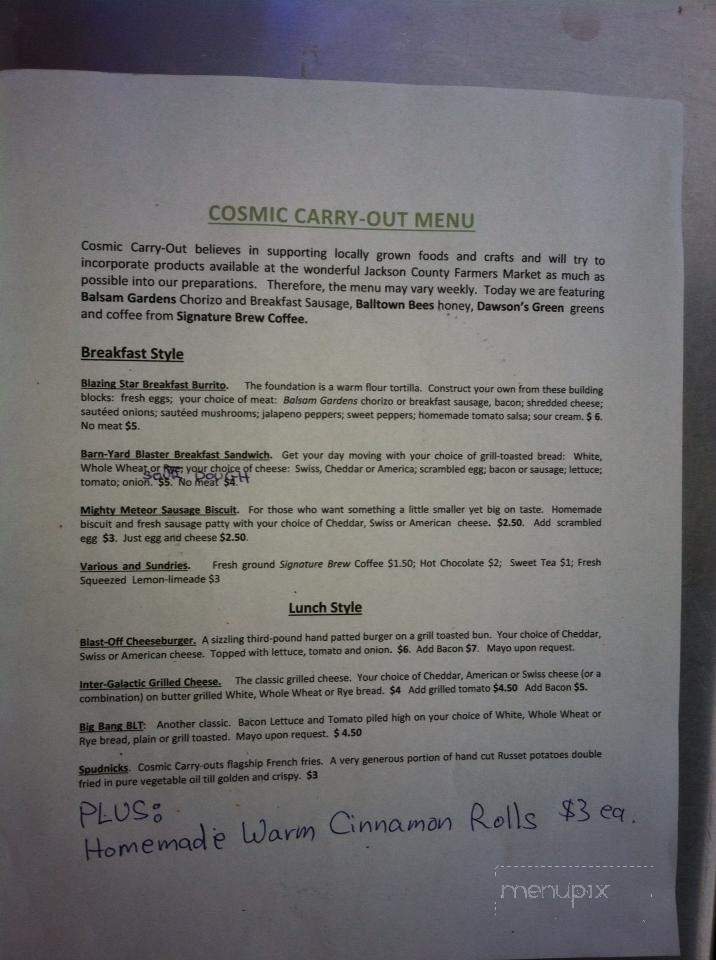 COSMIC CARRY-OUT MENU
Cosmic Carry-Out believes in supporting locally grown foods and crafts and will try to
incorporate products available at the wonderful Jackson County Farmers Market as much as
possible into our preparations. Therefore, the menu may vary weekly. Today we are featuring
Balsam Gardens Chorizo and Breakfast Sausage, Balltown Bees honey, Dawson's Green greens
and coffee from Signature Brew Coffee.
Breakfast Style
Blazing Star Breakfast Burrito. The foundation is a warm flour tortilla. Construct your own from these building
blocks: fresh eggs; your choice of meat: Balsam Gardens chorizo or breakfast sausage, bacon; shredded cheese;
sautéed onions; sautéed mushrooms; jalapeno peppers; sweet peppers; homemade tomato salsa; sour cream. $ 6.
No meat $5.
Barn-Yard Blaster Breakfast Sandwich. Get your day moving with your choice of grill-toasted bread: White,
Whole Wheat or Rye; your choice of cheese: Swiss, Cheddar or America; scrambled egg; bacon or sausage; lettuce;
SOUR DOUGH
tomato; onion. $5. No meat $4.
Mighty Meteor Sausage Biscuit. For those who want something a little smaller yet big on taste. Homemade
biscuit and fresh sausage patty with your choice of Cheddar, Swiss or American cheese. $2.50. Add scrambled
egg $3. Just egg and cheese $2.50.
Various and Sundries. Fresh ground Signature Brew Coffee $1.50; Hot Chocolate $2; Sweet Tea $1; Fresh
Squeezed Lemon-limeade $3
Lunch Style
Blast-Off Cheeseburger. A sizzling third-pound hand patted burger on a grill toasted bun. Your choice of Cheddar,
Swiss or American cheese. Topped with lettuce, tomato and onion. $6. Add Bacon $7. Mayo upon request.
Inter-Galactic Grilled Cheese. The classic grilled cheese. Your choice of Cheddar, American or Swiss cheese (or a
combination) on butter grilled White, Whole Wheat or Rye bread. $4 Add grilled tomato $4.50 Add Bacon $5.
Big Bang BLT: Another classic. Bacon Lettuce and Tomato piled high on your choice of White, Whole Wheat or
Rye bread, plain or grill toasted. Mayo upon request. $ 4.50
Spudnicks. Cosmic Carry-outs flagship French fries. A very generous portion of hand cut Russet potatoes double
fried in pure vegetable oil till golden and crispy. $3
PLUS:
Homemade Warm Cinnamon Rolls $3 ea.
menupix